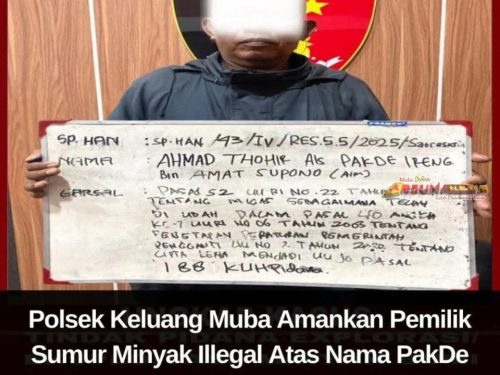 SP. HAN : SP. HAN / 43 / IV / RES. 5.5 / 2025 /
NAMA : AHMAD THOHIR Als PAKDE IRENG
Bin AMAT SUPONO (Alm)
PASAL 52 UU RI NO. 22 TAHUN
TENTANG MIGAS SEBAGAIMANA TELAH
DI UBAH DALAM PASAL 40 ANGKA
KE-7 UU RI NO 06 TAHUN 2003 TENTANG
PENETAPAN PERATURAN PEMERINTAH
PENGGANTI UU NO 2 TAHUN TENTANG
CIPTA MENJADI UU JO PASAL
KUHPidana
Media Online
Polsek Keluang Muba Amankan Pemilik
Sumur Minyak Illegal Atas Nama PakDe